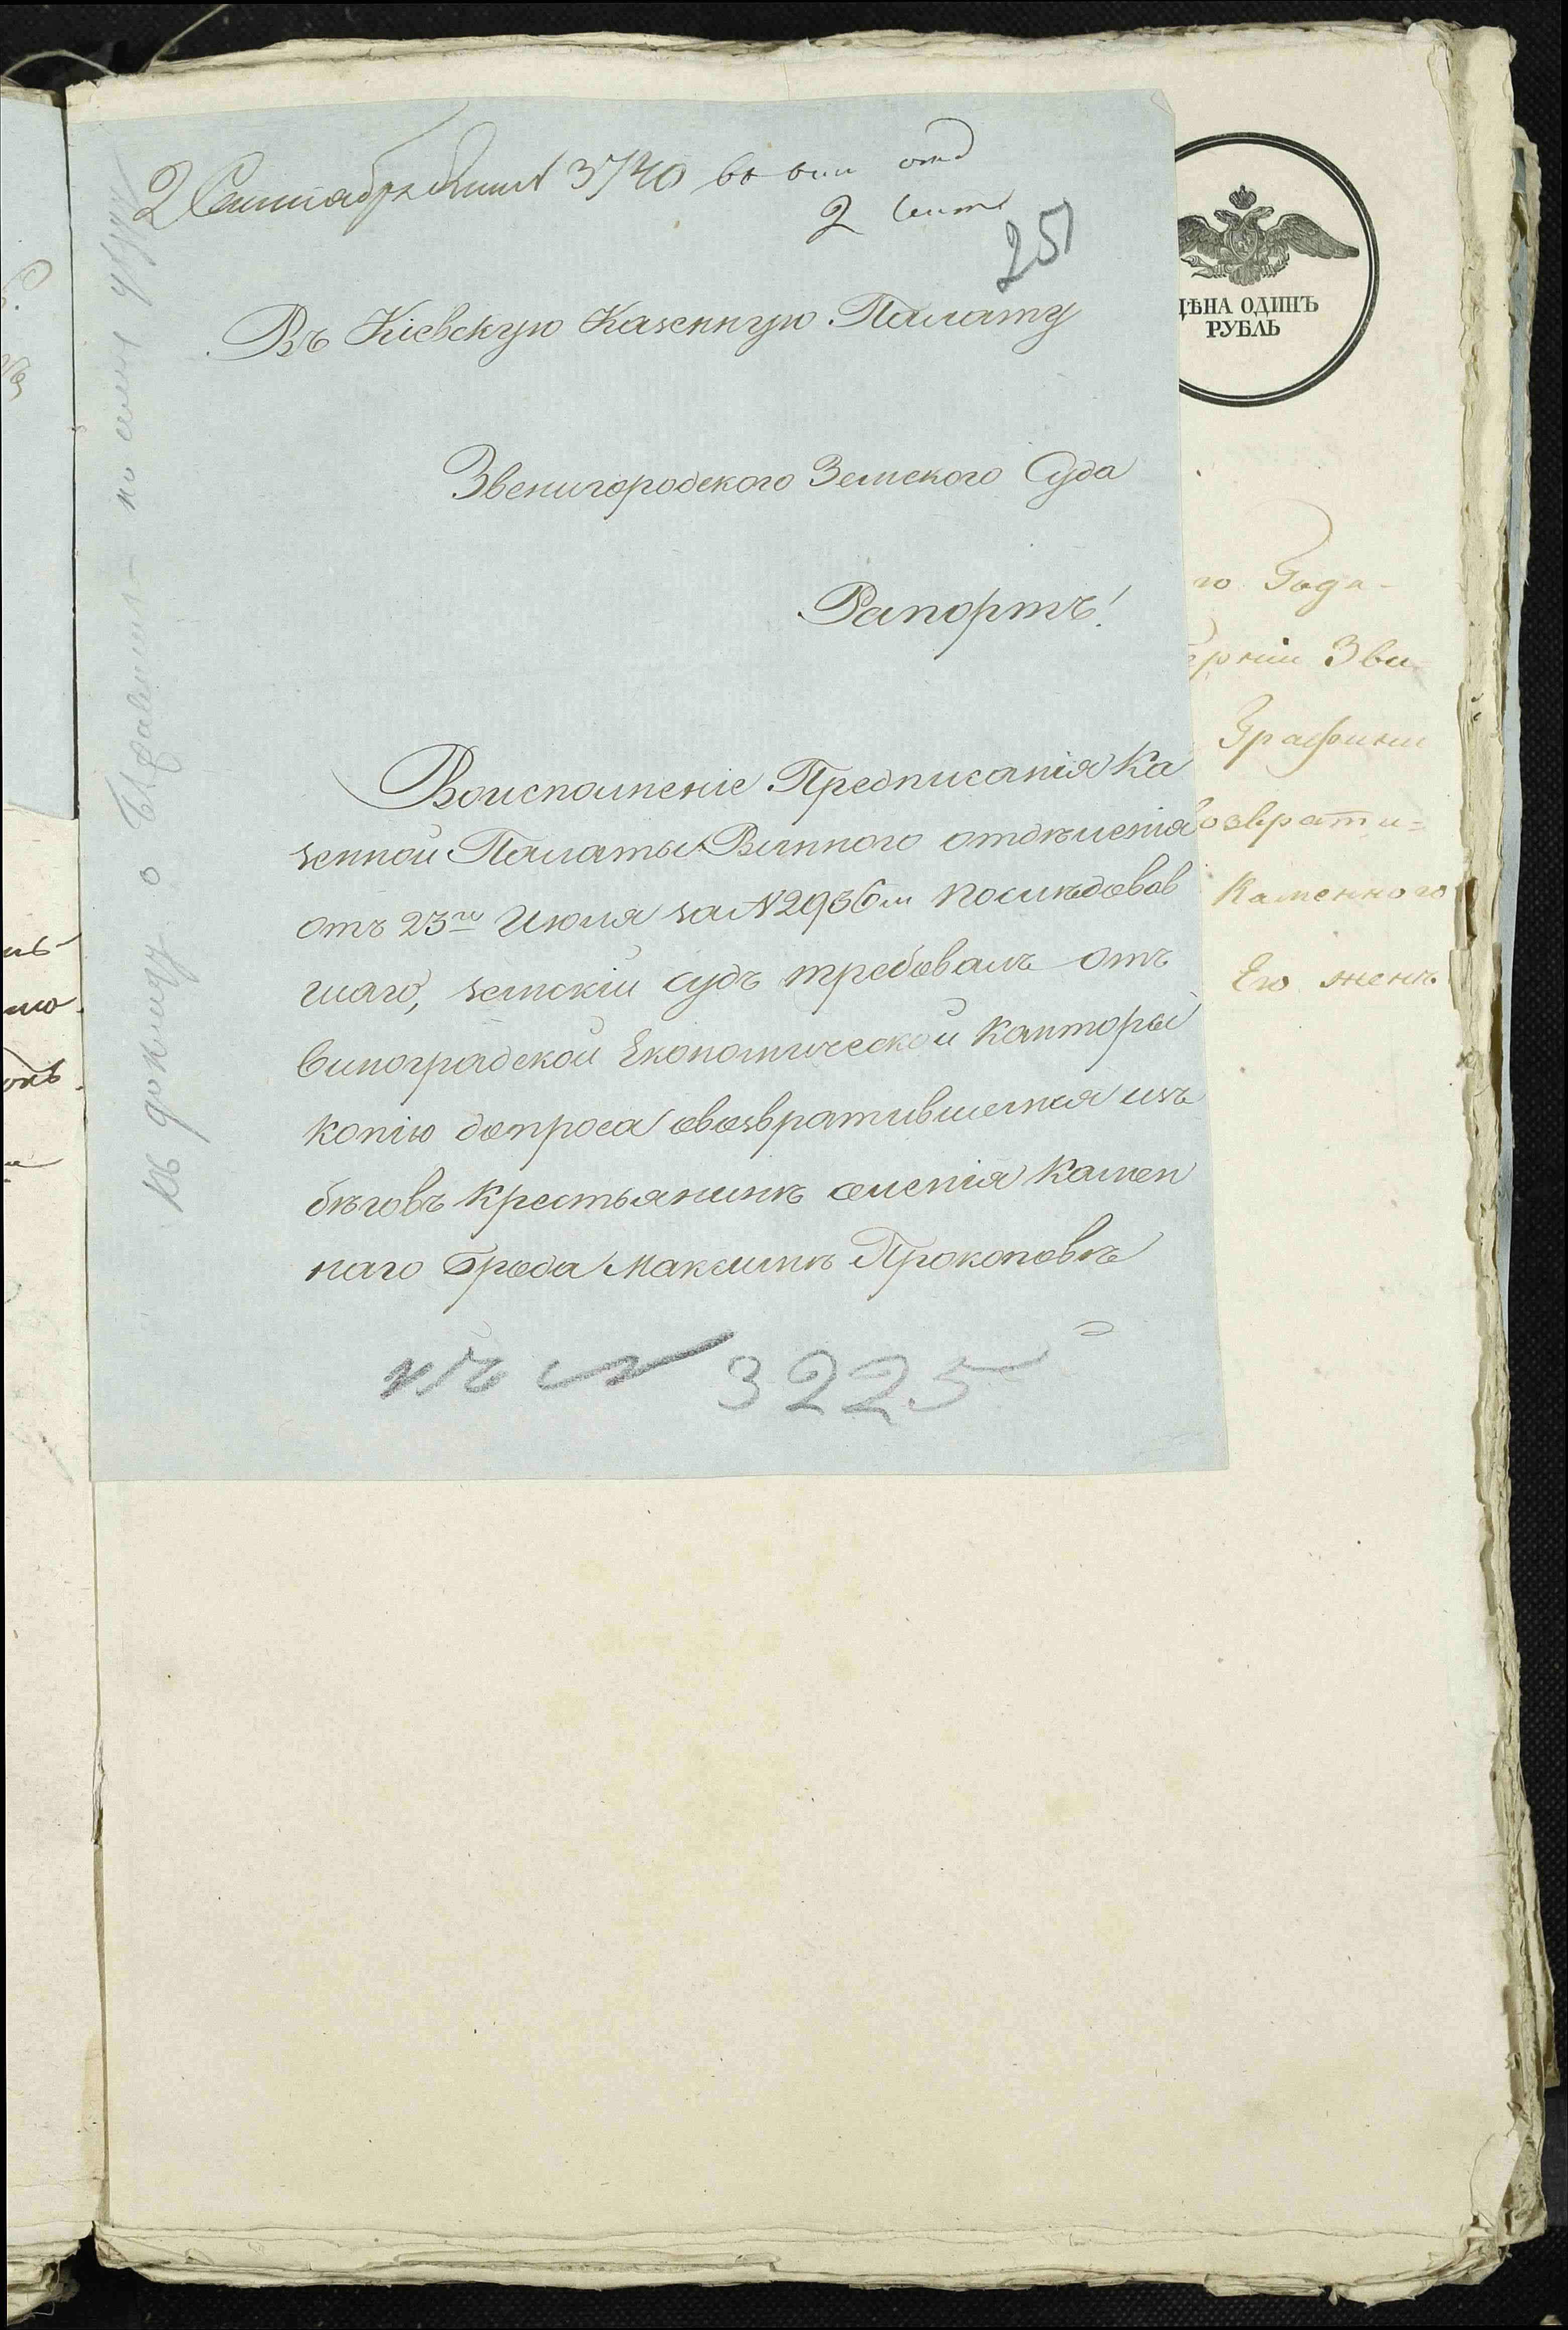 2 Сентября 3740 во вин отд
2 Сент
251
Въ Кіевскую Казенную Палату
Звенигородского Земского Суда
Рапортъ!
Воисполненіе Предписанія Ка
зенной Палаты Винного отдѣленія
отъ 23го Июля за N 2936м послѣдовав
шаго, земскій судъ требовалъ отъ
Виноградской Економической Канторы
копію допроса овозвратившемся изъ
бѣговъ крестьянинѣ селенія Камен
наго Брода Максимѣ Прокоповѣ
къ N 3225
къ докладу о
ЦѢНА ОДИНЪ
РУБЛЬ
го Года-
ерніи Зве
Графини
озврати=
Каменного
Его женѣ